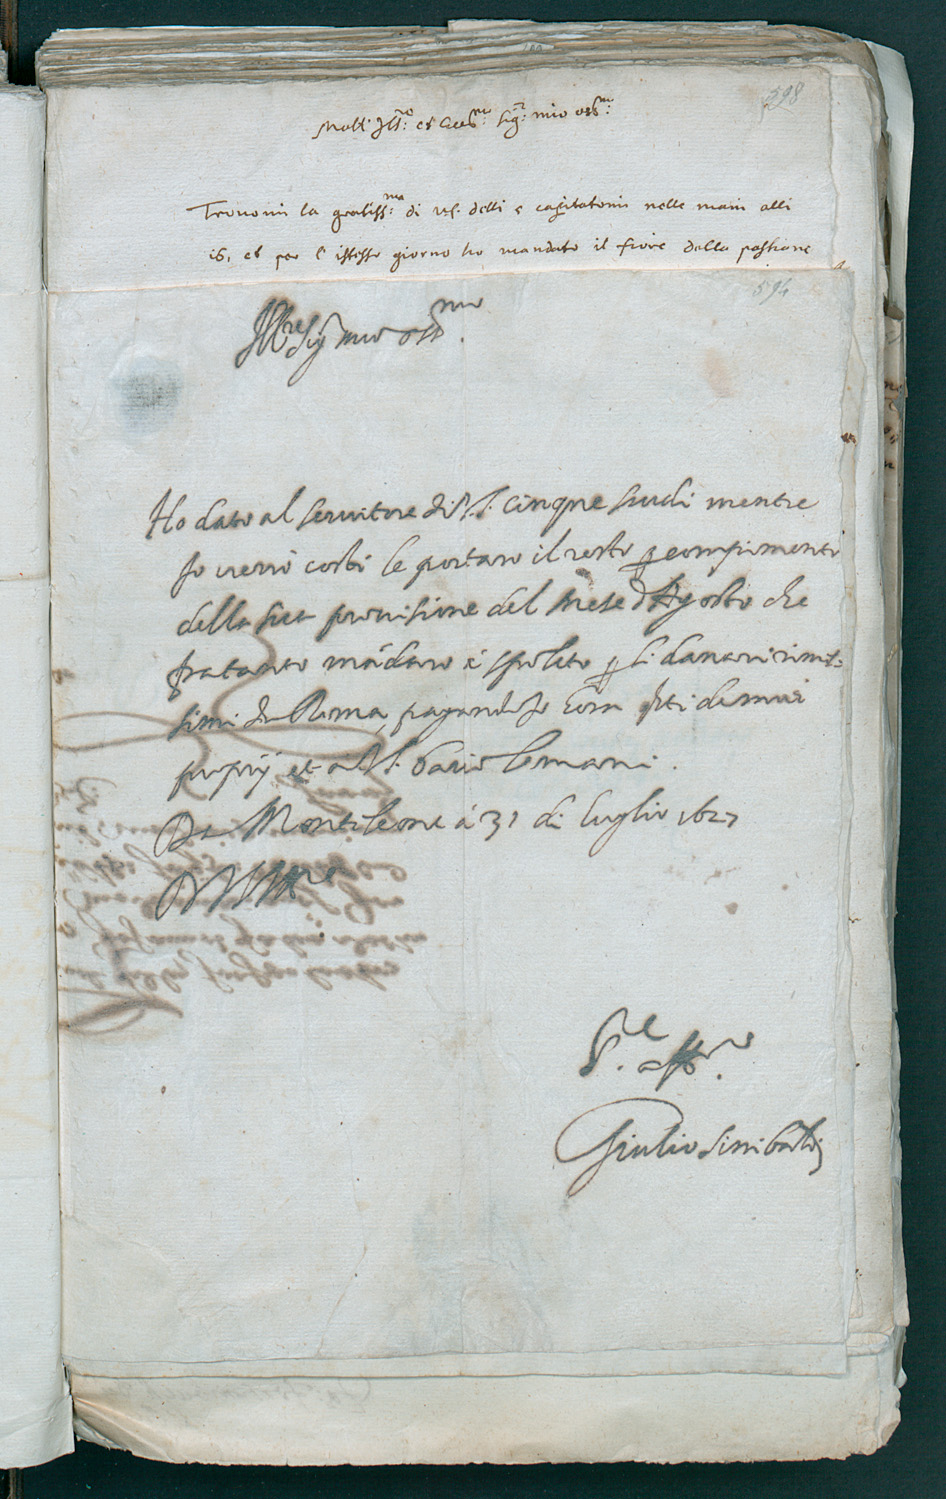 598
Molt' Ill:re et Ecc:mo Sig:r mio oss:mo
Trovomi la gratiss:ma di VS. delli e capitatomi nelle mani alli
16, et per l'istesso giorno ho mandato il fiore della passione
594
Ill.re Sig.r mio oss.mo
Ho dato al servitore di V.S. cinque scudi mentre
Io verrò costì le portarò il resto p compimento
della sua provisione del mese d'Agosto che
fratanto mādarò à spoleto p li danari rimes-
simi da Roma, pagandolo hora
proprij et à V.S. bacio le mani.
Da Monteleone à 31 di luglio 1627
Di V.S. Ill.re
S.re aff.mo
Giulio Sinibaldi